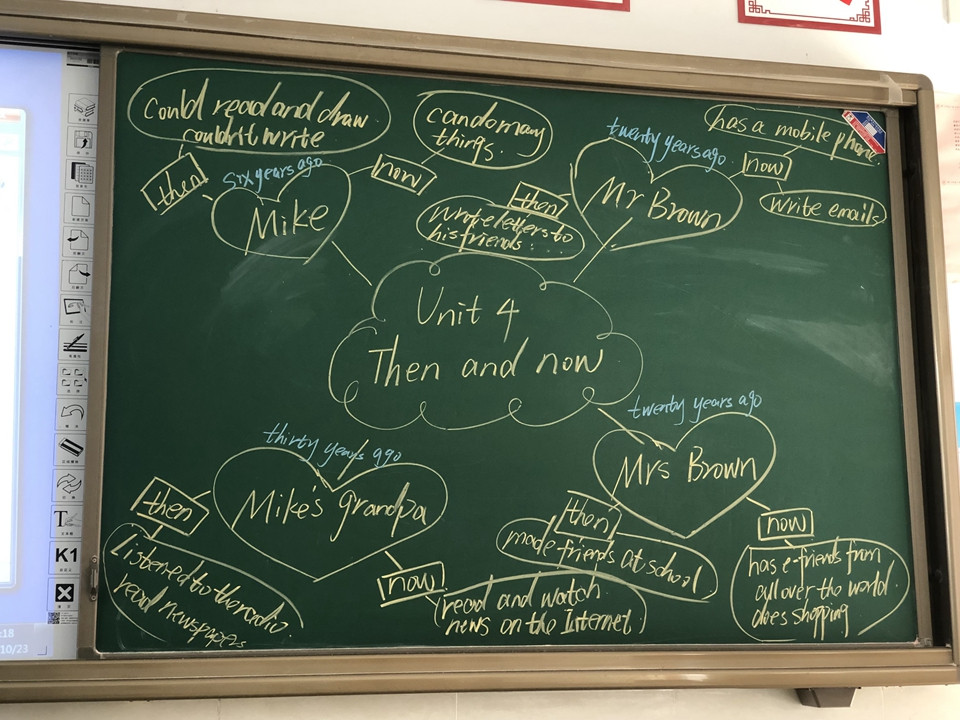 could read and draw
couldn't write
then
six years ago
Mike
now
can do many
things.
twenty years ago
Mr Brown
then
wrote letters to
his friends.
now
has a mobile phone
write emails
Unit 4
Then and now
thirty years ago
Mike's grandpa
then
listened to the radio
read newspapers
now
read and watch
news on the Internet
twenty years ago
Mrs Brown
then
made friends at school
now
has e-friends from
all over the world.
does shopping
K1
:18
10/23